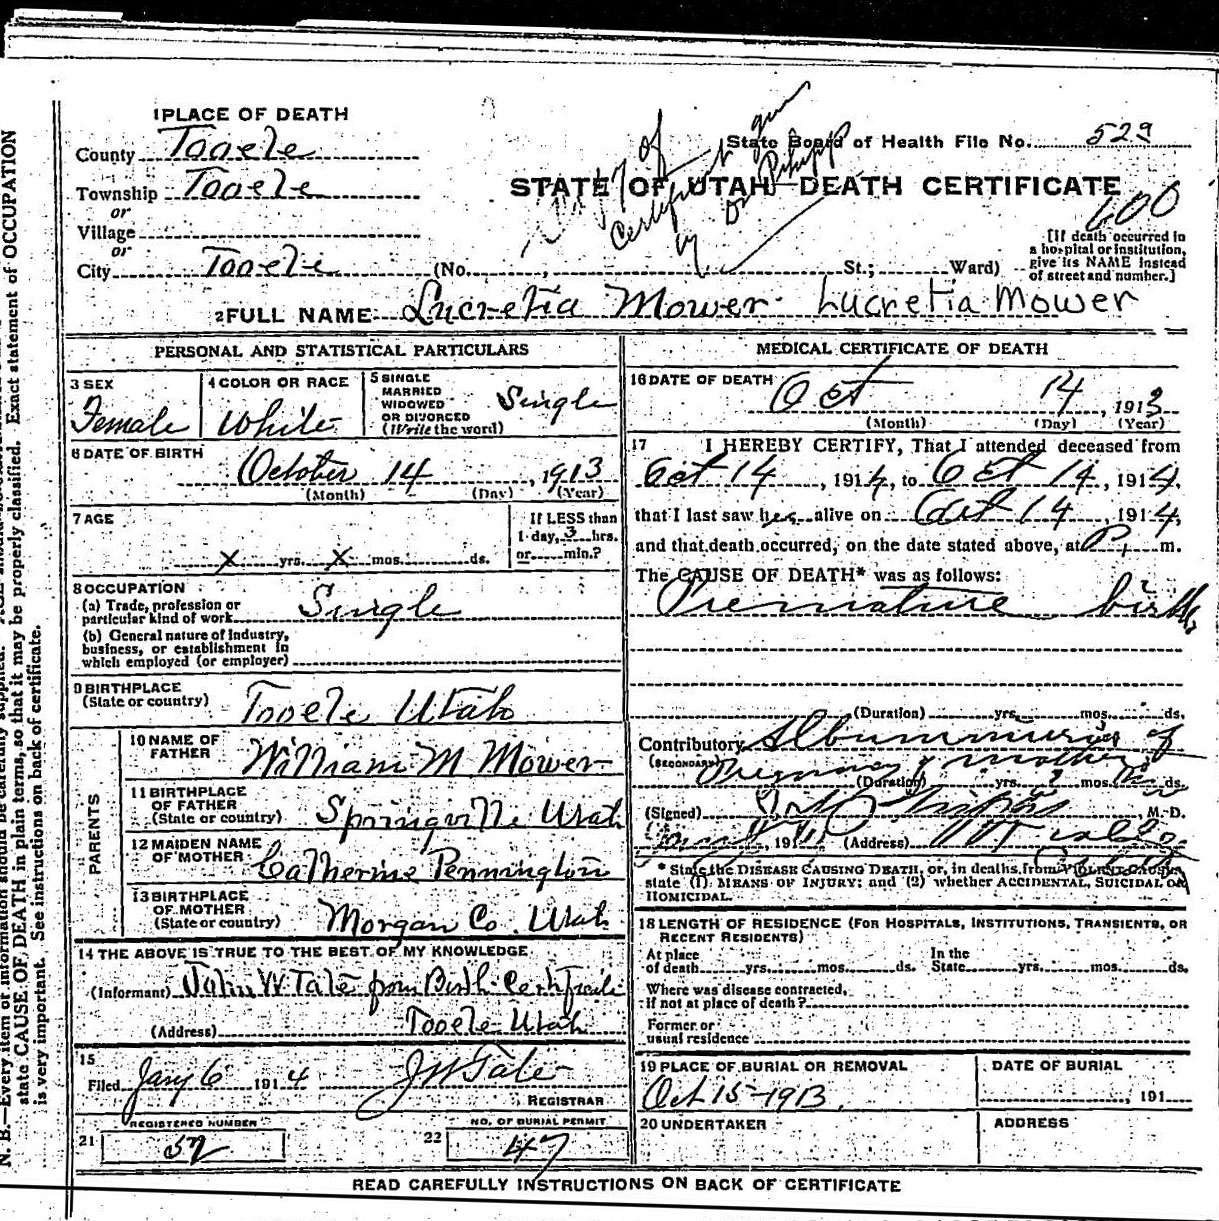 1 PLACE OF DEATH
County Tooele
State Board of Health File No. 529
Township Tooele
STATE OF UTAH—DEATH CERTIFICATE
or
Village
600
or
City Tooele (No. , St.; Ward)
[If death occurred in
a hospital or institution,
give its NAME instead
of street and number.]
of
Certificate
by
2 FULL NAME Lucretia Mower Lucretia Mower
PERSONAL AND STATISTICAL PARTICULARS
3 SEX
Female
4 COLOR OR RACE
White
5 SINGLE
MARRIED
WIDOWED
OR DIVORCED
(Write the word)
Single
6 DATE OF BIRTH
October 14, 1913
(Month) (Day) (Year)
7 AGE
X yrs. X mos. ds.
If LESS than
1 day, 3 hrs.
or min.?
8 OCCUPATION
(a) Trade, profession or
particular kind of work Single
(b) General nature of industry,
business, or establishment in
which employed (or employer)
9 BIRTHPLACE
(State or country) Tooele Utah
PARENTS
10 NAME OF
FATHER William M Mower
11 BIRTHPLACE
OF FATHER
(State or country) Springville Utah
12 MAIDEN NAME
OF MOTHER Catherine Pennington
13 BIRTHPLACE
OF MOTHER
(State or country) Morgan Co. Utah
14 THE ABOVE IS TRUE TO THE BEST OF MY KNOWLEDGE
(Informant) John W Tate from Birth Certificate
(Address) Tooele Utah
15
Filed Jany 6 1914 J W Tate
REGISTRAR
REGISTERED NUMBER
21 52
NO. OF BURIAL PERMIT
22 47
MEDICAL CERTIFICATE OF DEATH
16 DATE OF DEATH
Oct 14, 1913
(Month) (Day) (Year)
17 I HEREBY CERTIFY, That I attended deceased from
Oct 14, 1914, to Oct 14, 1914,
that I last saw her alive on Oct 14 1914,
and that death occurred, on the date stated above, at P. m.
The CAUSE OF DEATH* was as follows:
Premature birth
(Duration) yrs. mos. ds.
Contributory Albuminuria of
(SECONDARY) Pregnancy mother
(Duration) yrs. mos. ds.
(Signed) M. D.
, 191 (Address)
* State the DISEASE CAUSING DEATH, or, in deaths from VIOLENT CAUSES,
state (1) MEANS OF INJURY; and (2) whether ACCIDENTAL, SUICIDAL OR
HOMICIDAL.
18 LENGTH OF RESIDENCE (FOR HOSPITALS, INSTITUTIONS, TRANSIENTS, OR
RECENT RESIDENTS)
At place In the
of death yrs. mos. ds. State yrs. mos. ds.
Where was disease contracted,
if not at place of death?
Former or
usual residence
19 PLACE OF BURIAL OR REMOVAL
Oct 15-1913.
DATE OF BURIAL
, 191
20 UNDERTAKER
ADDRESS
READ CAREFULLY INSTRUCTIONS ON BACK OF CERTIFICATE
N. B.—Every item of information should be carefully supplied.
state CAUSE OF DEATH in plain terms, so that it may be properly classified. Exact statement of OCCUPATION
is very important. See instructions on back of certificate.